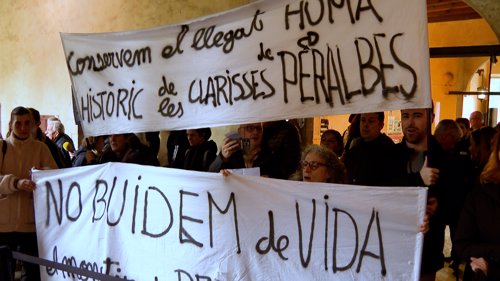 Conservem el llegat HUMÀ
HISTÒRIC de les CLARISSES de PERALBES
NO BUIDEM de VIDA
el